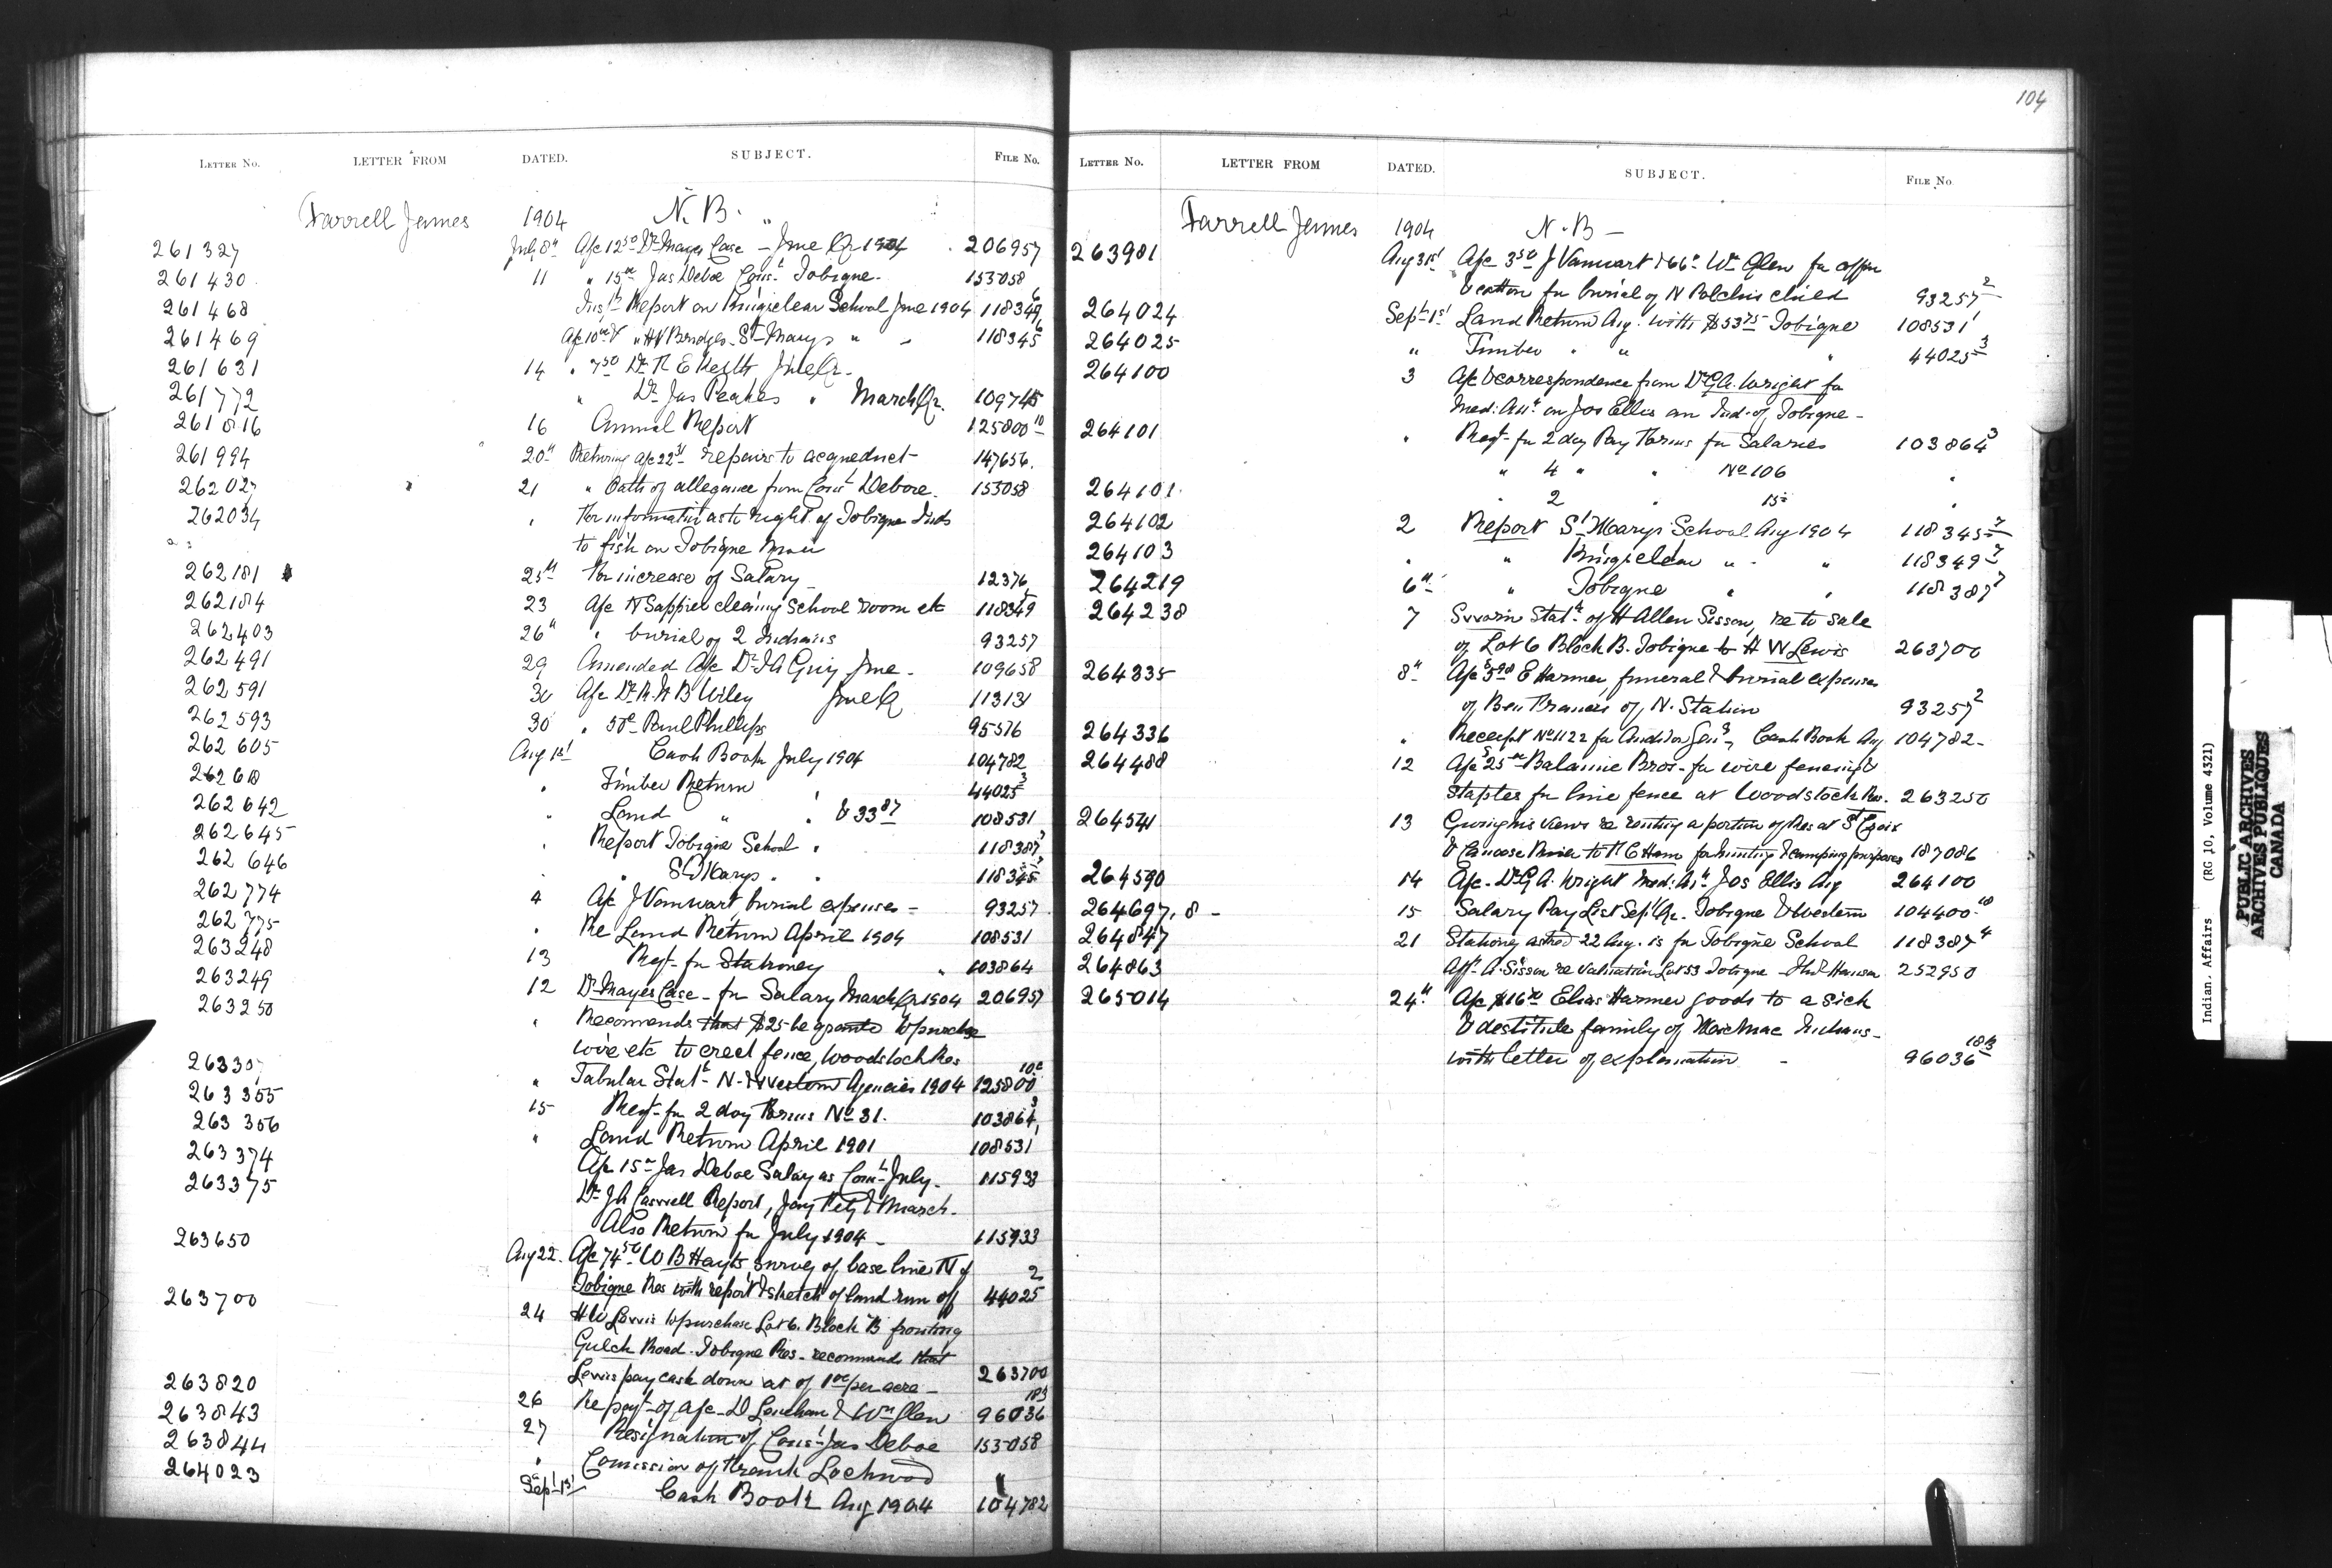 LETTER NO. LETTER FROM DATED. SUBJECT. FILE NO.
Farrell James 1904 N. B.
261327 July 8th A/c 12.50 Dr Mayes Case - June Qr 1904 206957
261430 11 " 15.00 Jas Deboe Const Tobique 153058
261468 Report on Kingsclear School June 1904 118349
261469 A/c " H V Bridges St Marys " 118345
261631 14 " 7.50 Dr June Qr.
261772 " Dr Jas Peakes " March Qr. 109745
261816 16 Annual Report 125800 10
261994 20th Returning A/c repairs to acqueduct 147656.
262027 21 " Oath of allegiance from Const Deboe. 153058
262034 " For information as to right of Tobique Inds
to fish on Tobique
262181 25th For increase of Salary 12376
262184 23 A/c N Sappier cleaning School room etc 118349
262403 26th " burial of 2 Indians 93257
262491 29 Amended A/c Dr June 109658
262591 30 A/c Dr B Wiley June Q 113131
262593 30 " Paul Phillips 95576
262605 Aug 1st Cash Book July 1904 104782
262618 " Timber Return " 44025 3
262642 " Land " " & 33.87 108531
262645 " Report Tobique School " 118387 3
262646 " " St Marys " " 118345
262774 4 A/c J Vanwart burial expenses - 93257
262775 " Re Land Return April 1904 108531
263248 13 Reqt for Stationery " 103864
263249 12 Dr Mayes Case - for Salary March Qr 1904 206957
263250 " Recomends that $25 be granted to purchase
wire etc to erect fence, Woodstock Res
263307 " Tabular Statt N. & Western Agencies 1904 125800
263355 15 Reqt for 2 day Forms No 31. 103864 3
263356 " Land Return April 1901 108531
263374 A/c 15.00 Jas Deboe Salary as Const July. 115933
263375 Dr Report, Jany Feby & March.
Also Return for July 1904 - 115933
263650 Aug 22. A/c 74.50 W B Hayts survey of base line of 2
Tobique Res with report & sketch of land run off 44025
263700 24 H W Lewis to purchase Lot 6. Block B fronting
Gulch Road. Tobique Res - recommends that
Lewis pay cash down at of 1.00 per acre - 263700
263820 26 Re payt of A/c D Lenehan & Wm Glew 96036
263843 27 Resignation of Const Jas Deboe 153058
263844 " Comission of Frank Lockwood "
264023 Sept 1st Cash Book Aug 1904 104782
104
LETTER NO. LETTER FROM DATED. SUBJECT. FILE NO.
Farrell James 1904 N. B -
263981 Aug 31st A/c 3.50 J Vanwart & Wm Glew for coffin
for burial of N Polchis child 93257 2
264024 Sept 1st Land Return Aug. with $53.75 Tobique 108531
264025 " Timber " " " 44025 3
264100 3 A/c & correspondence from Dr G A. Wright for
Med: Att. on Jos Ellis an Ind. of Tobique -
264101 " Reqt for 2 day Pay Forms for Salaries 103864 3
" 4 " " No 106 "
264101 " 2 " "
264102 2 Report St Marys School Aug 1904 118345 7
264103 " " Kingsclear " " 118349 7
264219 6th " Tobique " " 118387 7
264238 7 Sworn Statt of H Allen Sisson, re to sale
of Lot 6 Block B. Tobique to H W Lewis 263700
264335 8th A/c E Harmer, funeral & burial expenses
of Ben Francis of N. Station 93257 2
264336 " Receipt No 1122 for Auditor Genl, Cash Book Aug 104782
264488 12 A/c Balamie Bros - for wire fencing &
staples for line fence at Woodstock Res. 263250
264541 13 Giving his views re renting a portion of Res at St Croix
& Canoose River to for hunting & camping purposes 187086
264590 14 A/c - Dr G A. Wright Med: Att Jos Ellis Aug 264100
264697, 8 - 15 Salary Pay List Sept Qr. Tobique & Western 104400
264847 21 Stationery asked 22 Aug. is for Tobique School 118387 4
264863 A. Sisson re Valuation Lot 53 Tobique - 252950
265014 24th A/c Elias Harmer goods to a sick
& destitute family of Indians -
with letter of explanation - 96036
Indian. Affairs (RG 10, Volume 4321)
PUBLIC ARCHIVES
ARCHIVES PUBLIQUES
CANADA